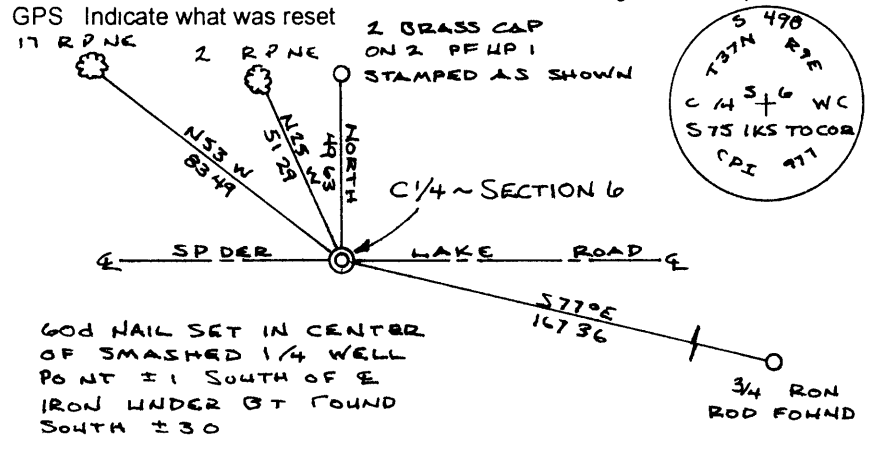 GPS Indicate what was reset
17 R P NE
2 R P NE
2 BRASS CAP
ON 2 PFHP 1
STAMPED AS SHOWN
S 498
T37N R9E
C 1/4 S + 6 WC
S 75 IKS TO COR
CPI 977
N53 W
83 49
N25 W
51 29
NORTH
49 63
C 1/4 ~ SECTION 6
℄ SP DER LAKE ROAD ℄
S77°E
167 36
3/4 RON
ROD FOUND
60d NAIL SET IN CENTER
OF SMASHED 1 1/4 WELL
PO NT ± 1 SOUTH OF ℄
IRON UNDER BT FOUND
SOUTH ± 30